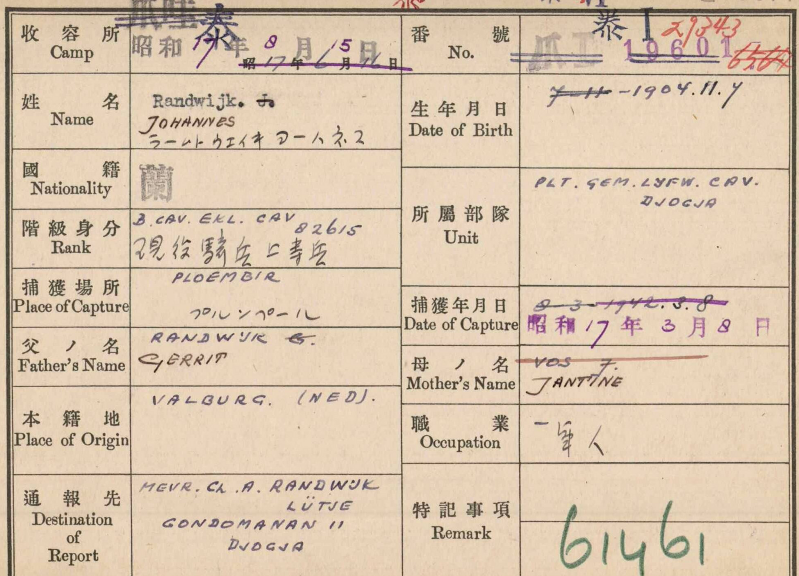 爪哇 泰
收容所
Camp
昭和 17 年 8 月 15 日
昭 17 年 6 月 16 日
番號
No.
爪 II 泰 I 29343
19601
姓名
Name
Randwijk. J.
JOHANNES
生年月日
Date of Birth
7-11-1904.11.7
國籍
Nationality
蘭
所屬部隊
Unit
PLT. GEM. LYFW. CAV.
DJOGJA
階級身分
Rank
B. CAV. EKL. CAV
82615
現役騎兵上等兵
捕獲場所
Place of Capture
PLOEMBIR
プルンペール
捕獲年月日
Date of Capture
8-3-1942.3.8
昭和 17 年 3 月 8 日
父ノ名
Father's Name
RANDWIJK G.
GERRIT
母ノ名
Mother's Name
VOS J.
JANTINE
本籍地
Place of Origin
VALBURG. (NED).
職業
Occupation
軍人
通報先
Destination
of
Report
MEVR. CH. A. RANDWIJK
LÜTJE
GONDOMANAN 11
DJOGJA
特記事項
Remark
61461